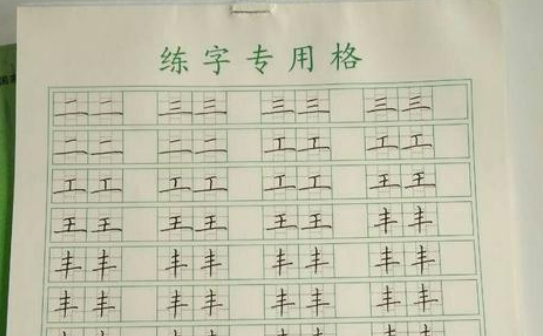 练字专用格
二二 三三 三三 三三
二二 二二 工工 工工
工工 工工 工工 王王
王王 王王 王王 丰丰
丰丰 丰丰 丰丰 丰丰
丰丰 丰丰 丰丰 丰丰